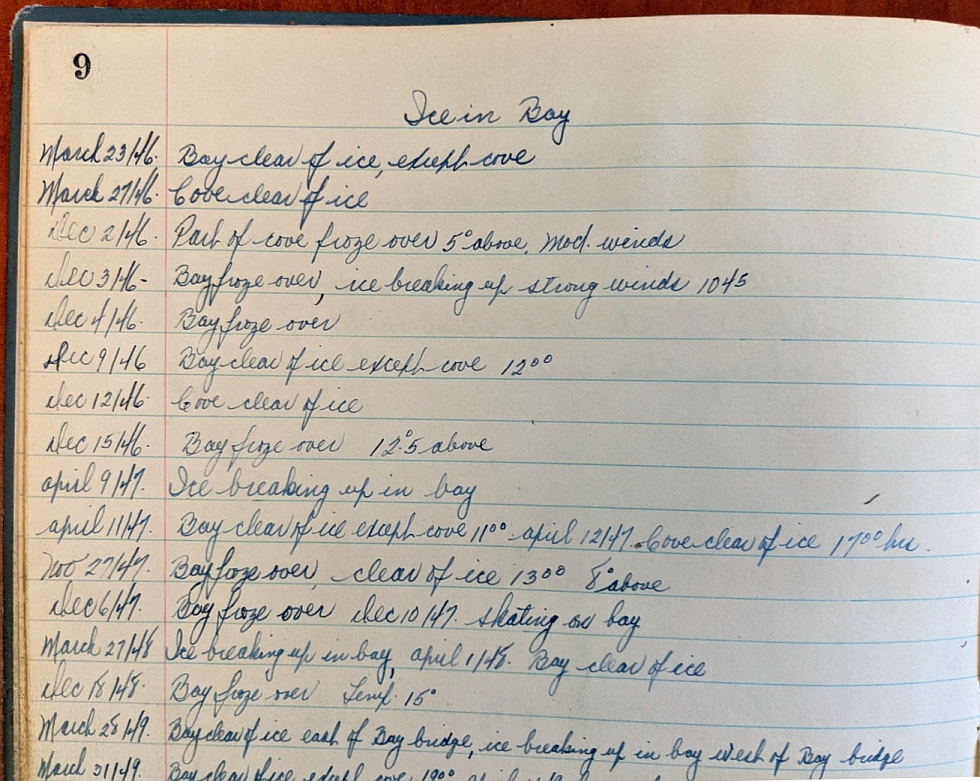 9
Ice in Bay
March 23/46. Bay clear of ice, except cove
March 27/46. Cove clear of ice
Dec 2/46. Part of cove froze over 5° above. Mod. winds
Dec 3/46- Bay froze over, ice breaking up strong winds 1045
Dec 4/46. Bay froze over
Dec 9/46 Bay clear of ice except cove 12⁰⁰
Dec 12/46. Cove clear of ice
Dec 15/46. Bay froze over 12°.5 above
april 9/47. Ice breaking up in bay
april 11/47. Bay clear of ice except cove 11⁰⁰ april 12/47. Cove clear of ice 17⁰⁰ hrs.
Nov 27/47. Bay froze over, clear of ice 13⁰⁰ 8° above
Dec 6/47. Bay froze over Dec 10/47. skating on bay
March 27/48 Ice breaking up in bay, april 1/48. Bay clear of ice
Dec 18/48. Bay froze over Temp. 15°
March 28/49. Bay clear of ice east of Bay bridge, ice breaking up in bay west of Bay bridge
March 31/49. Bay clear of ice, except cove